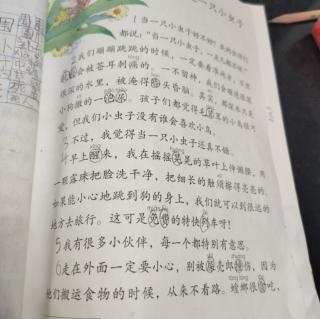 一只小虫子
当一只小虫子好不好？我的伙伴们
都说："当一只小虫子，一点儿都不好。"
我们蹦蹦跳跳的时候，一定要看准地方，不
会被苍耳刺痛的。一不留神，我们会蹦到
很深的水里，被淹得昏头昏脑。其实，
小狗撒的一泡尿。孩子们都觉得毛茸茸的小鸟很可
爱，但我们小虫子没有谁会喜欢小鸟。
不过，我觉得当一只小虫子还真不错。
早上醒来，我在摇摇晃晃的草叶上伸懒腰，用
一颗露珠把脸洗干净，把细长的触须擦得亮亮的。
如果能小心地跳到狗的身上，我们就可以到很远的
地方去旅行。这可是免费的特快列车呀！
我有很多小伙伴，每一个都特别有意思。
走在外面一定要小心，别被屎壳郎撞伤，因为
他们搬运食物的时候，从来不看路。螳螂很贪吃，